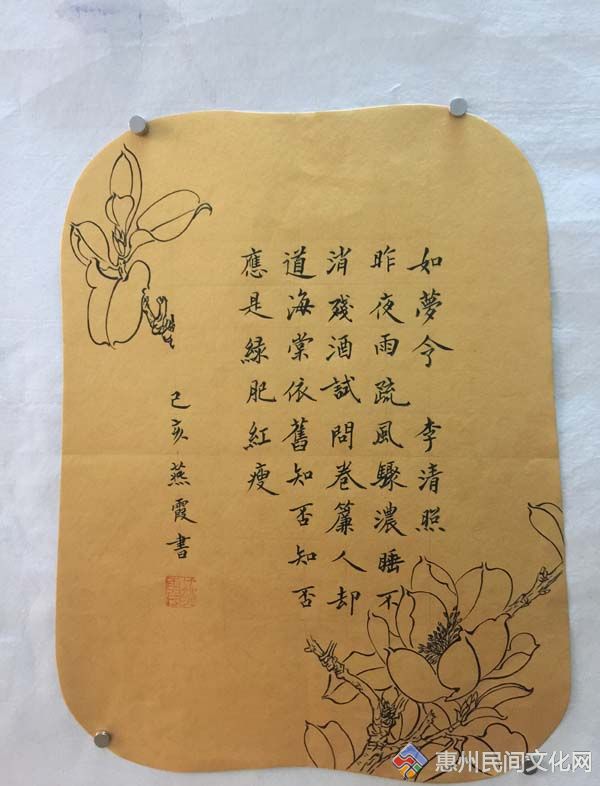 如夢令 李清照
昨夜雨疏風驟濃睡不
消殘酒試問卷簾人却
道海棠依舊知否知否
應是綠肥紅瘦
己亥燕霞書
惠州民间文化网